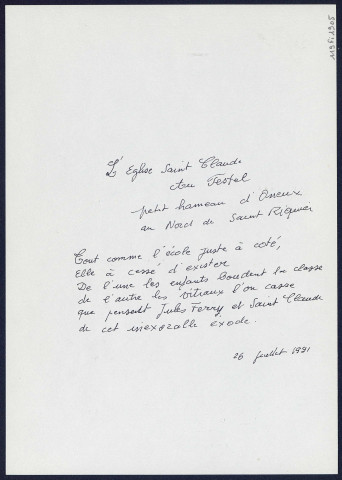 119Fi1905
L'Eglise Saint Claude
du Festel
petit hameau d'Oneux
au Nord de Saint Riquier
Tout comme l'école juste à coté,
Elle à cessé d'exister
De l'une les enfants boudent la classe
de l'autre les vitraux l'on casse
que pensent Jules Ferry et Saint Claude
de cet inexorable exode.
26 juillet 1991